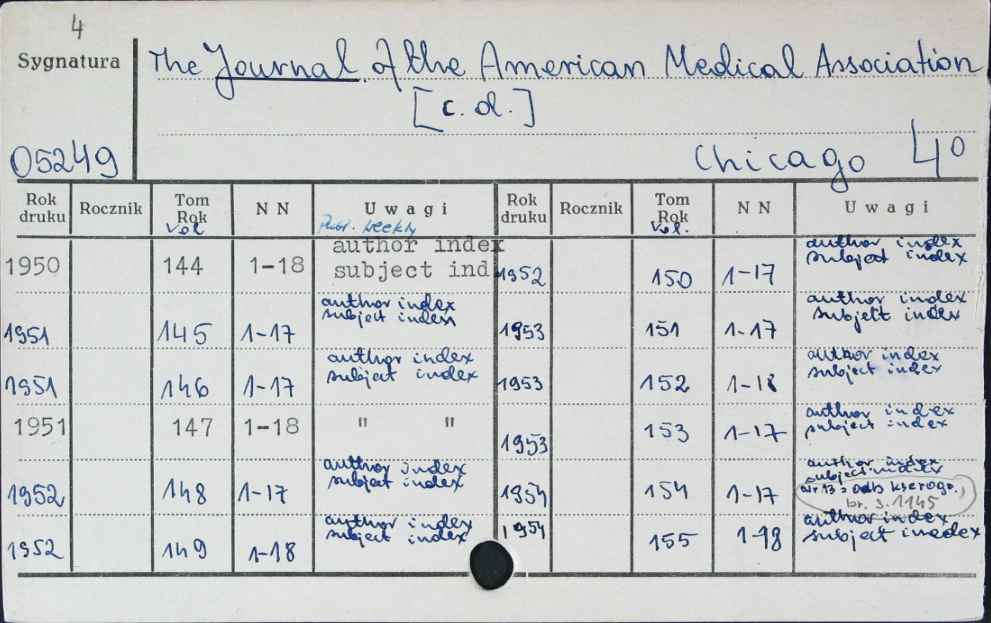 4
Sygnatura
The Journal of the American Medical Association
[c. d.]
05249
Chicago 4°
Rok druku Rocznik Tom Rok Vol NN Uwagi Publ. weekly Rok druku Rocznik Tom Rok Vol. NN Uwagi
1950 144 1-18 author index subject ind 1952 150 1-17 author index subject index
1951 145 1-17 author index subject index 1953 151 1-17 author index subject index
1951 146 1-17 author index subject index 1953 152 1-18 author index subject index
1951 147 1-18 " " 1953 153 1-17 author index subject index
1952 148 1-17 author index subject index 1954 154 1-17 author index subject index
nr 13 = odb. kserogr.
br. s. 1145
1952 149 1-18 author index subject index 1954 155 1-18 author index subject inedex